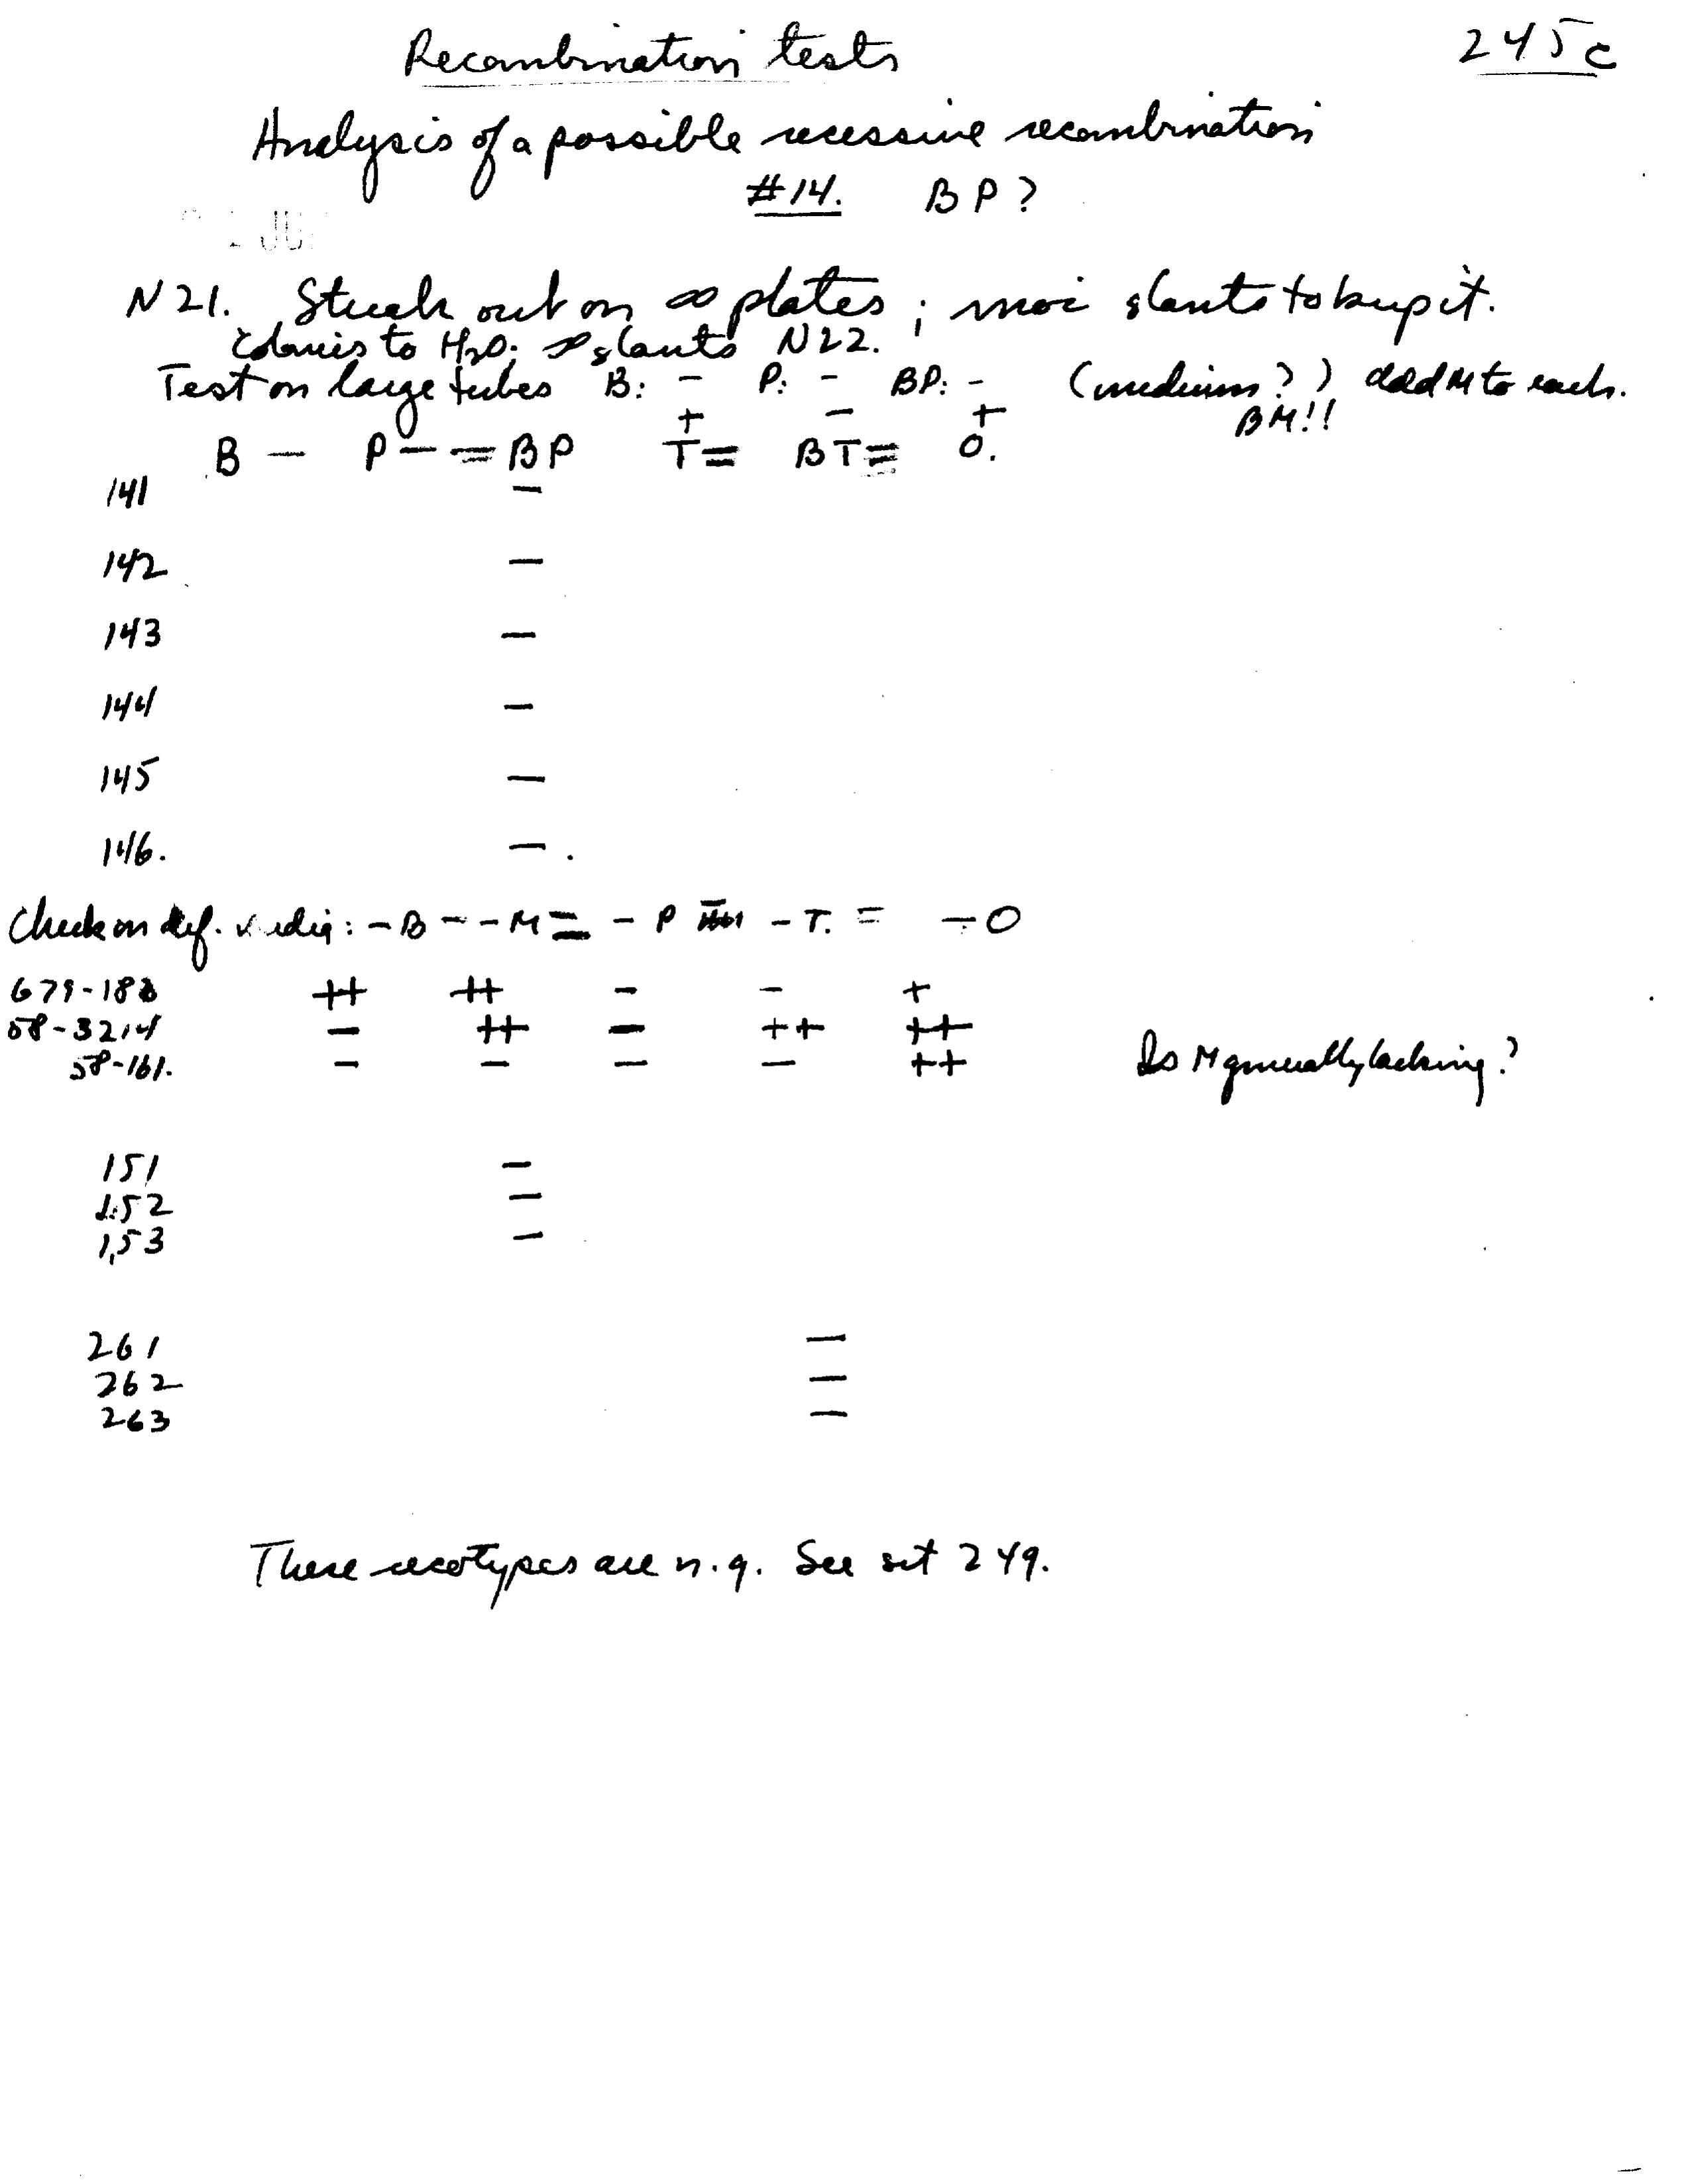 Recombination tests 245c
Analysis of a possible recessive recombination
#14. BP?
JU
N21. Struck out on ∞ plates; slants to keep it.
Colonies to H2O; ∞ slants N22.
Test on large tubes B: - P: - BP: - (medium?) add M to each.
+ - + BM!!
B — P — = BP T= BT= O.
141 —
142 —
143 —
144 —
145 —
146. — .
Check on def. media: -B - -M = - P -T. = -O
679-183 ++ ++ - - +
58-3214 — ++ — ++ ++
58-161. - - - - ++ Is M generally lacking?
151 —
152 —
153 —
261 —
262 —
263 —
These recotypes are n.g. See set 249.